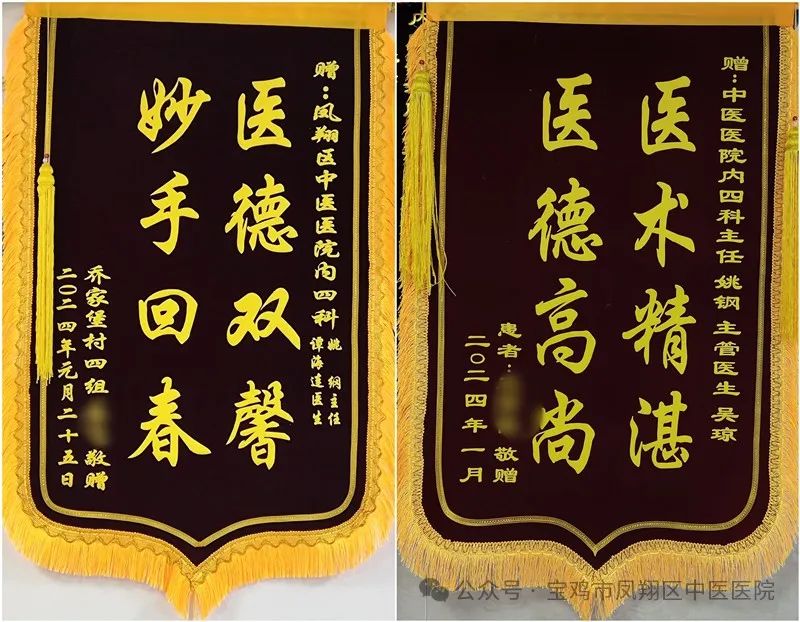 赠：凤翔区中医医院内四科姚纲主任
谭海莲医生
医德双馨
妙手回春
乔家堡村四组 敬赠
二〇二四年元月二十五日
赠：中医医院内四科主任 姚钢 主管医生 吴琼
医术精湛
医德高尚
患者： 敬赠
二〇二四年一月
公众号·宝鸡市凤翔区中医医院